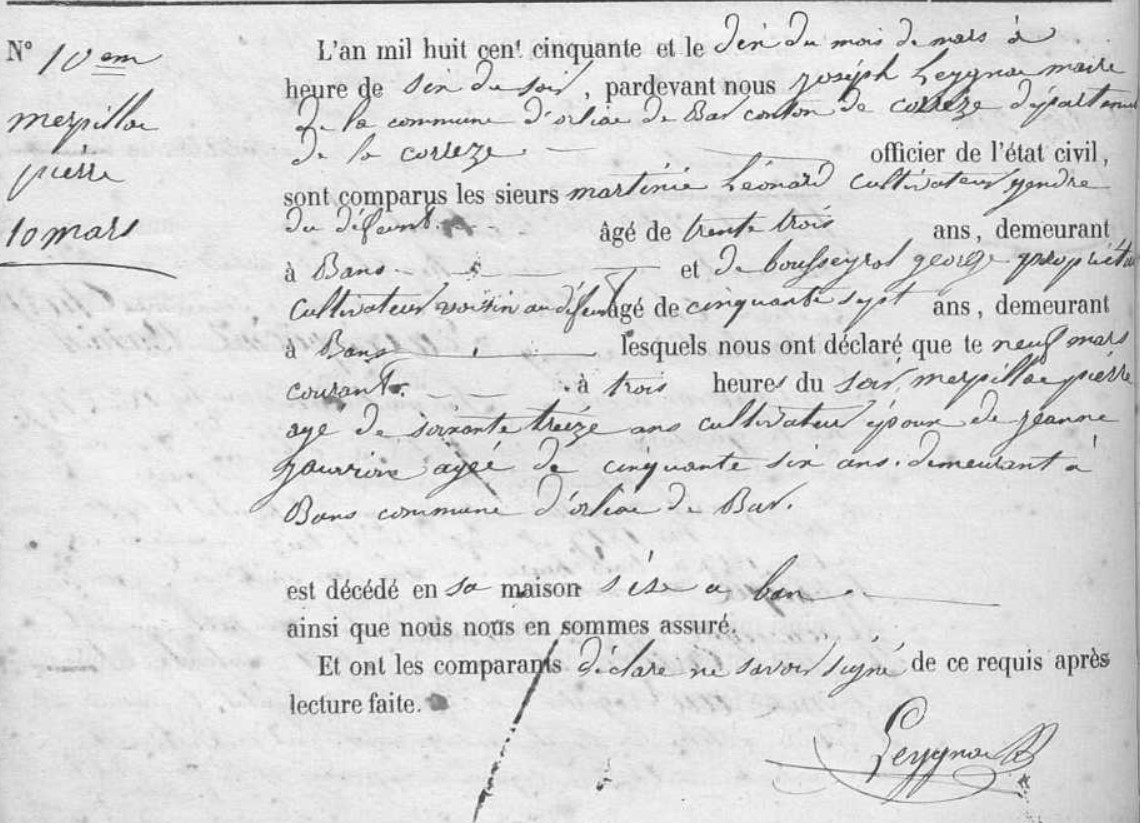 N° 10 em
mespillac
pierre
10 mars
L'an mil huit cent cinquante et le dix du mois de mars à
heure de six du soir, pardevant nous joseph Leygnac maire
de la commune d'orliac de Bar canton de correze départeme
de la correze. officier de l'état civil,
sont comparus les sieurs martinie Léonard cultivateur gendre
du défunt. âgé de trente trois ans, demeurant
à Bans et de bousseyrol george propriétai
cultivateur voisin au défunt âgé de cinquante sept ans, demeurant
à Bans lesquels nous ont déclaré que le neuf mars
courant. à trois heures du soir, mespillac pierre
agé de soixante treize ans cultivateur époux de jeanne
agé de cinquante six ans. demeurant à
Bans commune d'orliac de Bar.
est décédé en sa maison sise a ban
ainsi que nous nous en sommes assuré.
Et ont les comparants déclare ne savoir signé de ce requis après
lecture faite.
Leygnac